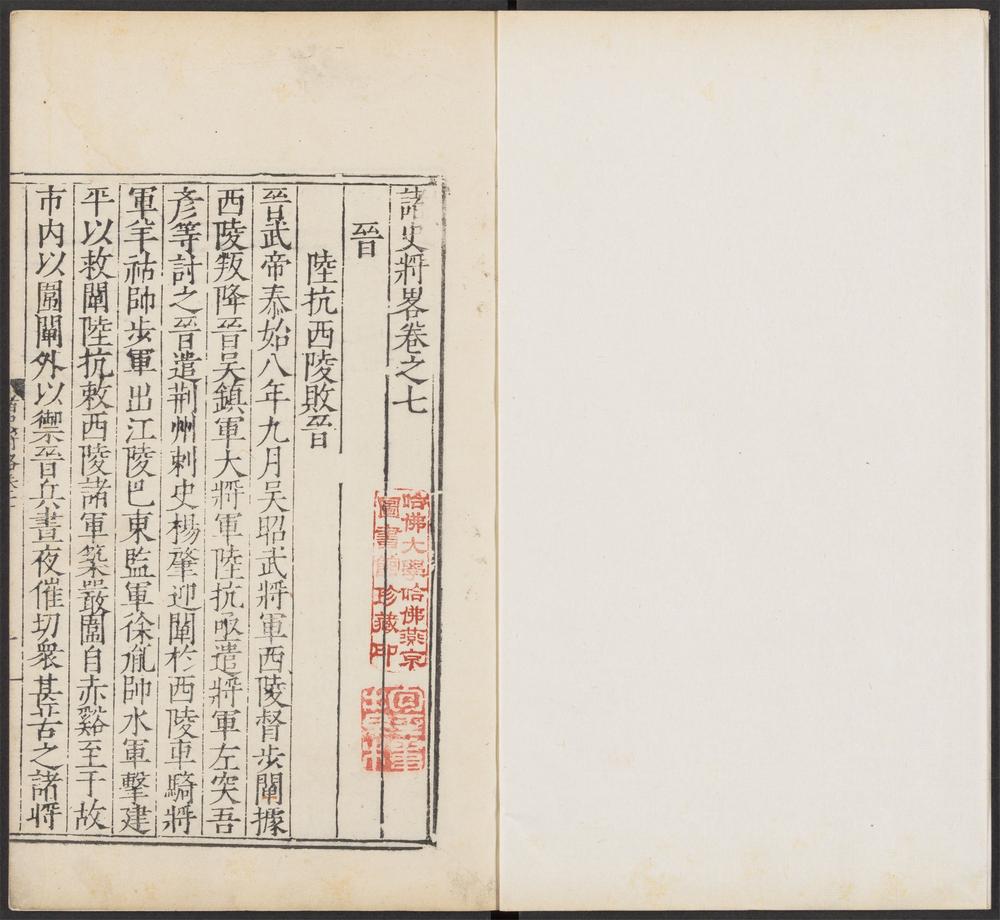 諸史將畧卷之七
晉
陸抗西陵敗晉
晉武帝泰始八年九月吳昭武將軍西陵督步闡據
西陵叛降晉吳鎮軍大將軍陸抗亟遣將軍左突吾
彥等討之晉遣荆州刺史楊肇迎闡於西陵車騎將
軍羊祜帥步軍出江陵巴東監軍徐胤帥水軍擊建
平以救闡陸抗敕西陵諸軍築嚴圍自赤谿至于故
市内以圍闡外以禦晉兵晝夜催切衆甚苦之諸將
哈佛大學哈佛燕京
圖書館珍藏印